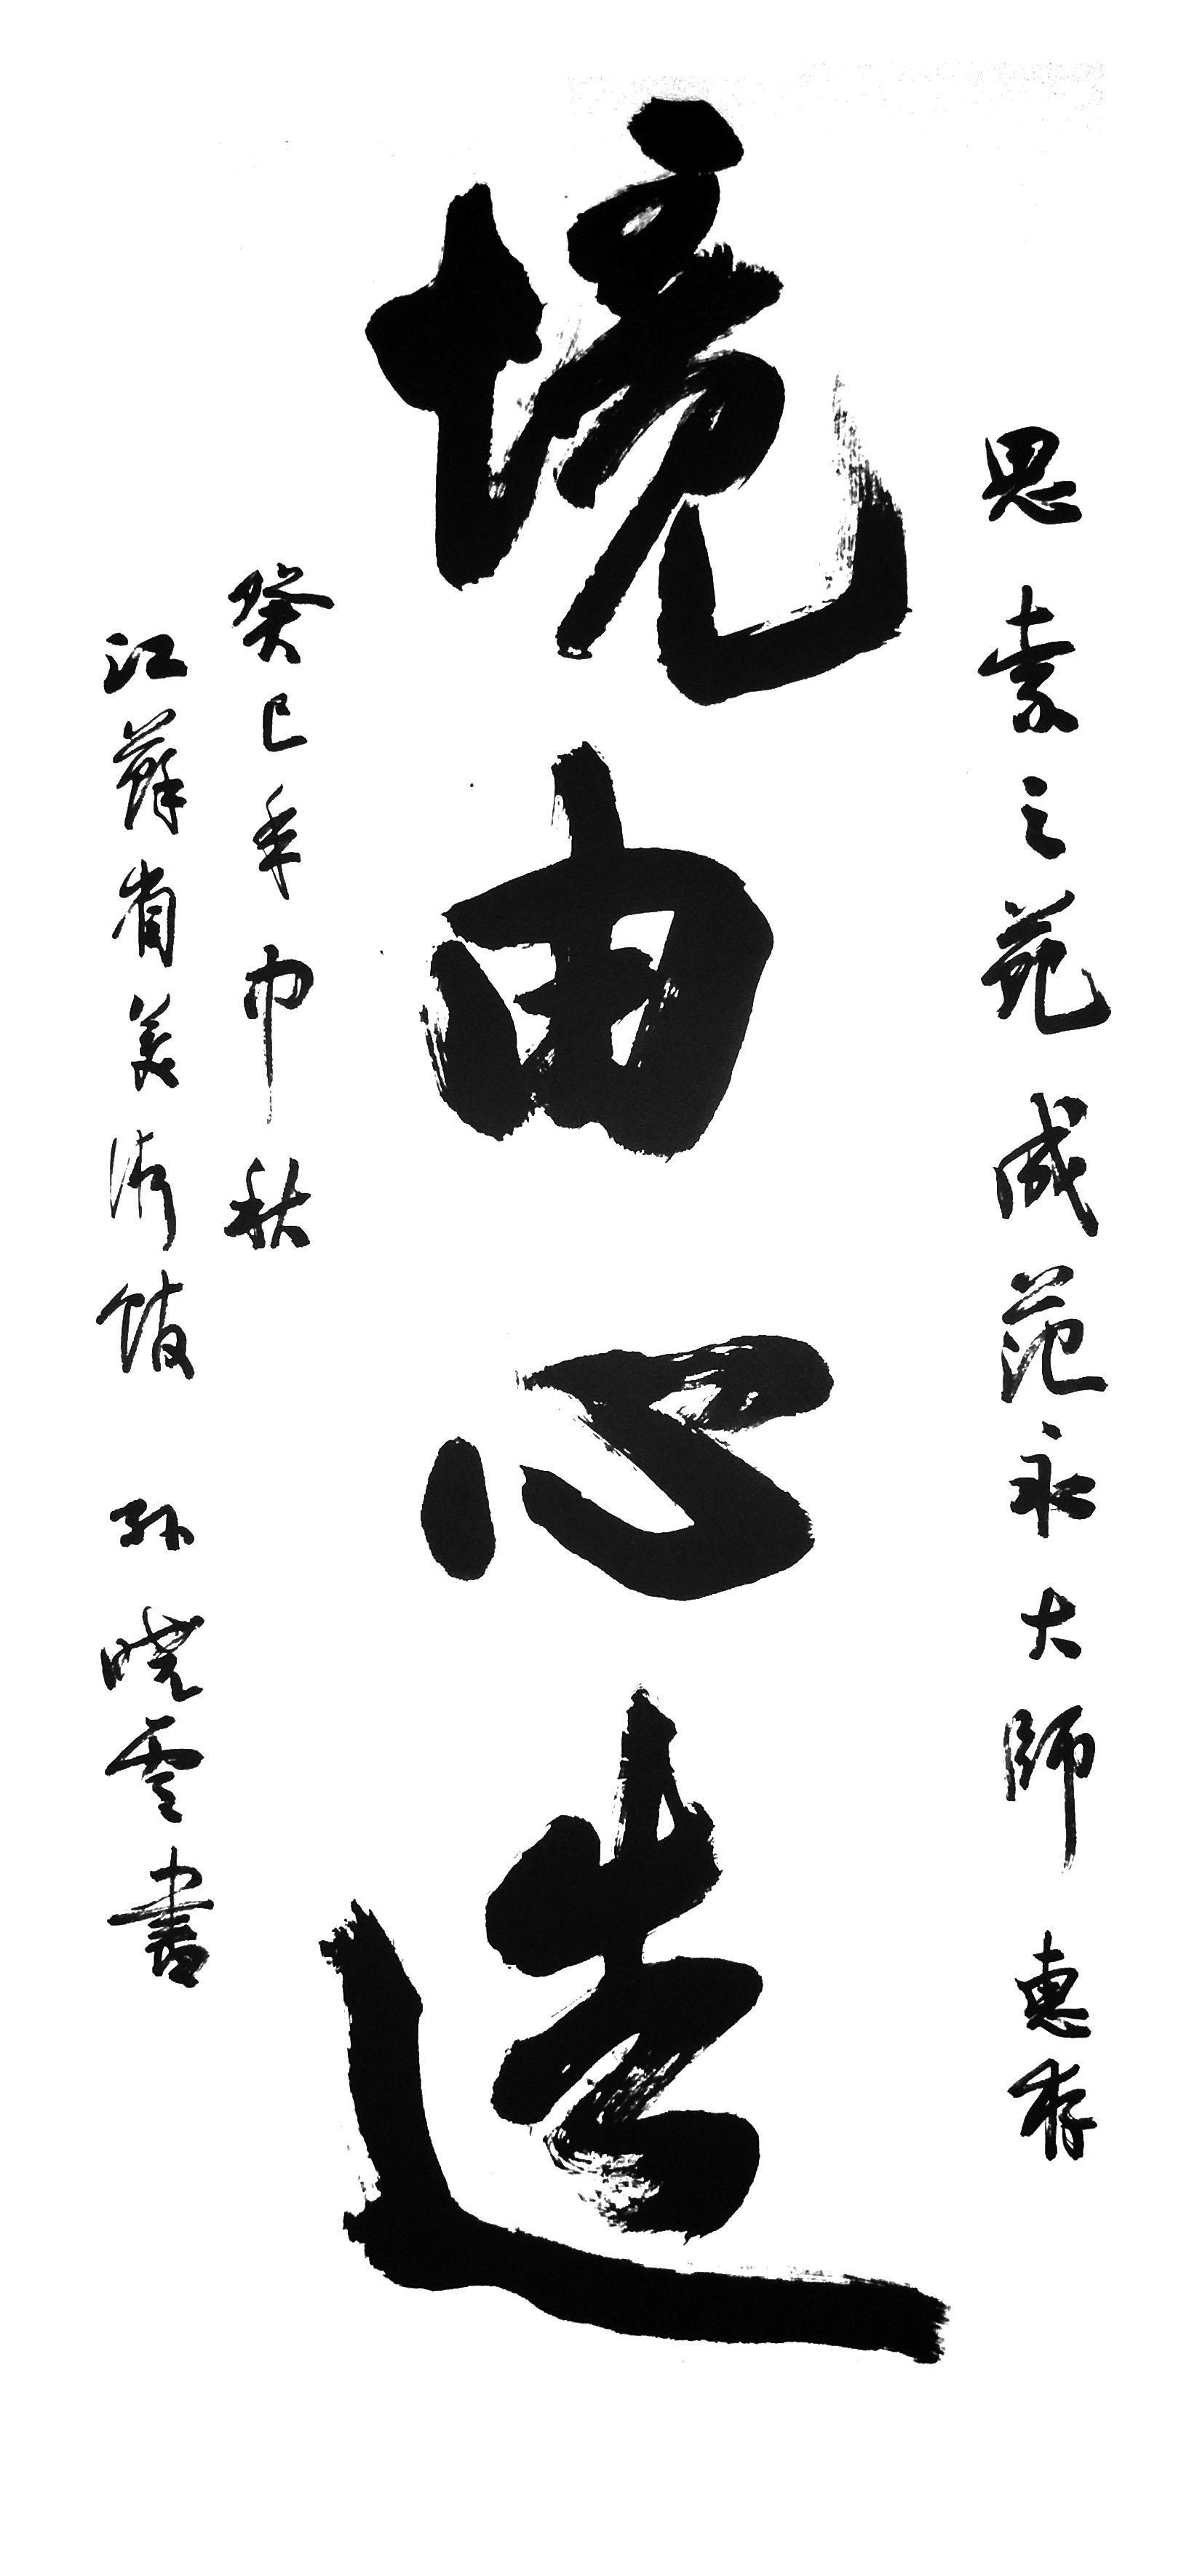 思索之苑 成范永大師 惠存
境由心造
癸巳年中秋
江蘇省美術館 孫曉雲書